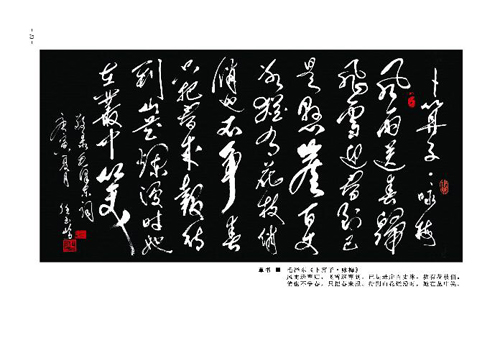 卜算子·咏梅
风雨送春歸
飛雪迎春到已
是懸崖百丈
冰犹有花枝俏
俏也不争春
只把春来報待
到山花烂漫时她
在叢中笑
毛泽东词
庚寅八月
草书 ■ 毛泽东《卜算子·咏梅》
风雨送春归，飞雪迎春到。已是悬崖百丈冰，犹有花枝俏。
俏也不争春，只把春来报。待到山花烂漫时，她在丛中笑。